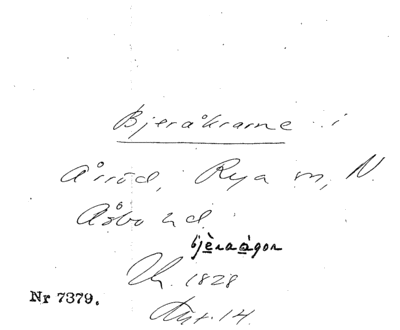 Bjeråkrarne i
Årröd, Rya sn, N.
Åsbo hd.
bjèraågor
1828
Nr 7379.
Akt. 14.